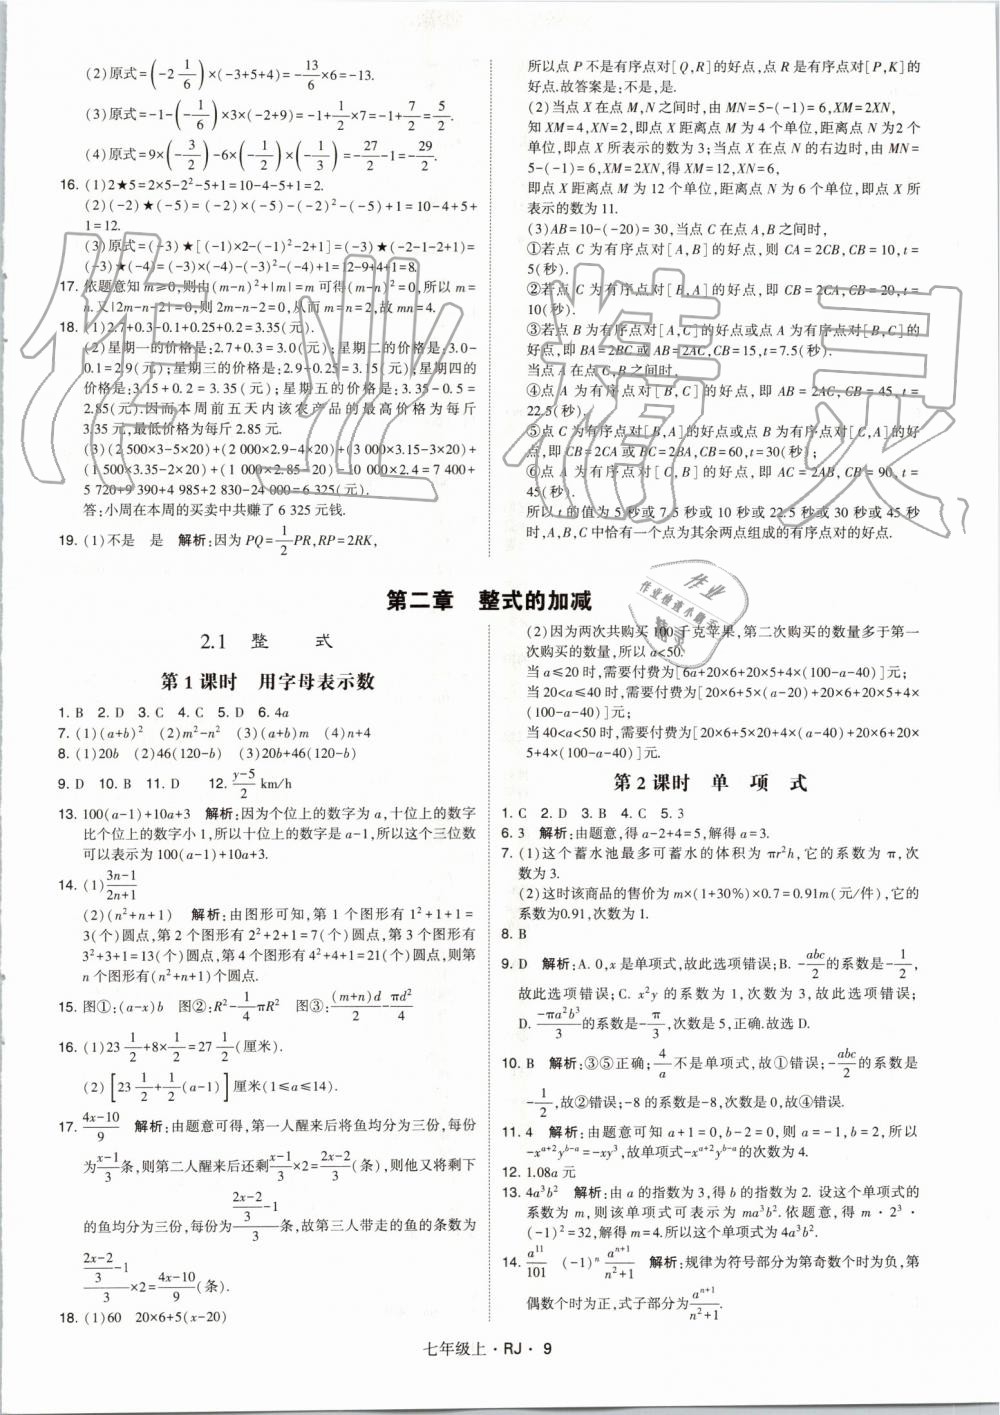 (2)原式=(-2 1/6)×(-3+5+4)=-13/6×6=-13.
(3)原式=-1-(-1/6)×3×(-2+9)=-1+1/2×7=-1+7/2=5/2.
(4)原式=9×(-3/2)-6×(-1/2)×(-1/3)=-27/2-1=-29/2.
16. (1)2★5=2×5-2²-5+1=10-4-5+1=2.
(2)(-2)★(-5)=(-2)×(-5)-(-2)²-(-5)+1=10-4+5+
1=12.
(3)原式=(-3)★[(-1)×2-(-1)²-2+1]=(-3)★(-2-1-2+1)=
(-3)★(-4)=(-3)×(-4)-(-3)²-(-4)+1=12-9+4+1=8.
17. 依题意知 m≥0,则由(m-n)²+|m|=m 可得(m-n)²=0,所以 m=
n.又|2m-n-2|=0,所以 2m-n-2=0,从而 m=n=2,故 mn=4.
18. (1)2.7+0.3-0.1+0.25+0.2=3.35(元).
(2)星期一的价格是:2.7+0.3=3.0(元);星期二的价格是:3.0-
0.1=2.9(元);星期三的价格是:2.9+0.25=3.15(元);星期四的
价格是:3.15+0.2=3.35(元);星期五的价格是:3.35-0.5=
2.85(元).因而本周前五天内该农产品的最高价格为每斤
3.35元,最低价格为每斤 2.85 元.
(3)(2 500×3-5×20)+(2 000×2.9-4×20)+(3 000×3.15-3×20)+
(1 500×3.35-2×20)+(1 000×2.85-20)-10 000×2.4=7 400+
5 720+9 390+4 985+2 830-24 000=6 325(元).
答:小周在本周的买卖中共赚了 6 325 元钱.
19. (1)不是 是 解析:因为 PQ=1/2PR,RP=2RK,
所以点 P 不是有序点对[Q,R]的好点,点 R 是有序点对[P,K]的
好点.故答案是:不是,是.
(2)当点 X 在点 M,N 之间时,由 MN=5-(-1)=6,XM=2XN,
知 XM=4,XN=2,即点 X 距离点 M 为 4 个单位,距离点 N 为2 个
单位,即点 X 所表示的数为 3;当点 X 在点 N 的右边时,由 MN=
5-(-1)=6,XM=2XN,得 XM=12,XN=6,
即点 X 距离点 M 为 12 个单位,距离点 N 为 6 个单位,即点 X 所
表示的数为 11.
(3)AB=10-(-20)=30,当点 C 在点 A,B 之间时,
①若点 C 为有序点对[A,B]的好点,则 CA=2CB,CB=10,t=
5(秒).
②若点 C 为有序点对[B,A]的好点,即 CB=2CA,CB=20,t=
10(秒).
③若点 B 为有序点对[A,C]的好点或点 A 为有序点对[B,C]的
好点,即 BA=2BC 或 AB=2AC,CB=15,t=7.5(秒).
当点 A 在点 C,B 之间时,
④点 A 为有序点对[B,C]的好点,即 AB=2AC,CB=45,t=
22.5(秒).
⑤点 C 为有序点对[B,A]的好点或点 B 为有序点对[C,A]的好
点,即 CB=2CA 或 BC=2BA,CB=60,t=30(秒);
⑥点 A 为有序点对[C,B]的好点,即 AC=2AB,CB=90,t=
45(秒).
所以 t 的值为 5 秒或 7.5 秒或 10 秒或 22.5 秒或 30 秒或 45 秒
时,A,B,C 中恰有一个点为其余两点组成的有序点对的好点.
第二章 整式的加减
2.1 整 式
第 1 课时 用字母表示数
1. B 2. D 3. C 4. C 5. D 6. 4a
7. (1)(a+b)² (2)m²-n² (3)(a+b)m (4)n+4
8. (1)20b (2)46(120-b) (3)20b+46(120-b)
9. D 10. B 11. D 12. (y-5)/2 km/h
13. 100(a-1)+10a+3 解析:因为个位上的数字为 a,十位上的数字
比个位上的数字小 1,所以十位上的数字是 a-1,所以这个三位数
可以表示为 100(a-1)+10a+3.
14. (1)(3n-1)/(2n+1)
(2)(n²+n+1) 解析:由图形可知,第 1 个图形有 1²+1+1=
3(个)圆点,第 2 个图形有 2²+2+1=7(个)圆点,第 3 个图形有
3²+3+1=13(个)圆点,第 4 个图形有 4²+4+1=21(个)圆点,则第
n 个图形有(n²+n+1)个圆点.
15. 图①:(a-x)b 图②:R²-1/4πR² 图③:(m+n)d/2-πd²/4
16. (1)23 1/2+8×1/2=27 1/2(厘米).
(2)[23 1/2+1/2(a-1)]厘米(1≤a≤14).
17. (4x-10)/9 解析:由题意可得,第一人醒来后将鱼均分为三份,每份
为(x-1)/3条,则第二人醒来后还剩(x-1)/3×2=(2x-2)/3(条),则他又将剩下
的鱼均分为三份,每份为((2x-2)/3-1)/3条,故第三人带走的鱼的条数为
((2x-2)/3-1)/3×2=(4x-10)/9(条).
18. (1)60 20×6+5(x-20)
(2)因为两次共购买 100 千克苹果,第二次购买的数量多于第一
次购买的数量,所以 a<50.
当 a≤20 时,需要付费为[6a+20×6+20×5+4×(100-a-40)]元;
当 20<a≤40 时,需要付费为[20×6+5×(a-20)+20×6+20×5+4×
(100-a-40)]元;
当 40<a<50 时,需要付费为[20×6+5×20+4×(a-40)+20×6+20×
5+4×(100-a-40)]元.
第 2 课时 单 项 式
1. C 2. D 3. B 4. C 5. 3
6. 3 解析:由题意,得 a-2+4=5,解得 a=3.
7. (1)这个蓄水池最多可蓄水的体积为 πr²h,它的系数为 π,次
数为 3.
(2)这时该商品的售价为 m×(1+30%)×0.7=0.91m(元/件),它的
系数为0.91,次数为 1.
8. B
9. D 解析:A. 0,x 是单项式,故此选项错误;B. -abc/2的系数是-1/2,
故此选项错误;C. x²y 的系数为 1,次数为 3,故此选项错误;
D. -πa²b³/3的系数是-π/3,次数是 5,正确.故选 D.
10. B 解析:③⑤正确;4/a不是单项式,故①错误;-abc/2的系数是
-1/2,故②错误;-8 的系数是-8,次数是 0,故④错误.
11. 4 解析:由题意可知 a+1=0,b-2=0,所以 a=-1,b=2,所以
-xᵃ⁺²yᵇ⁻ᵃ=-xy³,故单项式-xᵃ⁺²yᵇ⁻ᵃ的次数为 4.
12. 1.08a 元
13. 4a³b² 解析:由 a 的指数为 3,得 b 的指数为 2. 设这个单项式的
系数为 m,则该单项式可表示为 ma³b². 依题意,得 m·2³·
(-1)²=32,解得 m=4.所以这个单项式为 4a³b².
14. a¹¹/101 (-1)ⁿ aⁿ⁺¹/(n²+1) 解析:规律为符号部分为第奇数个时为负,第
偶数个时为正,式子部分为aⁿ⁺¹/(n²+1).
七年级上·RJ·9
作业精灵
作业
作业检查小
精灵